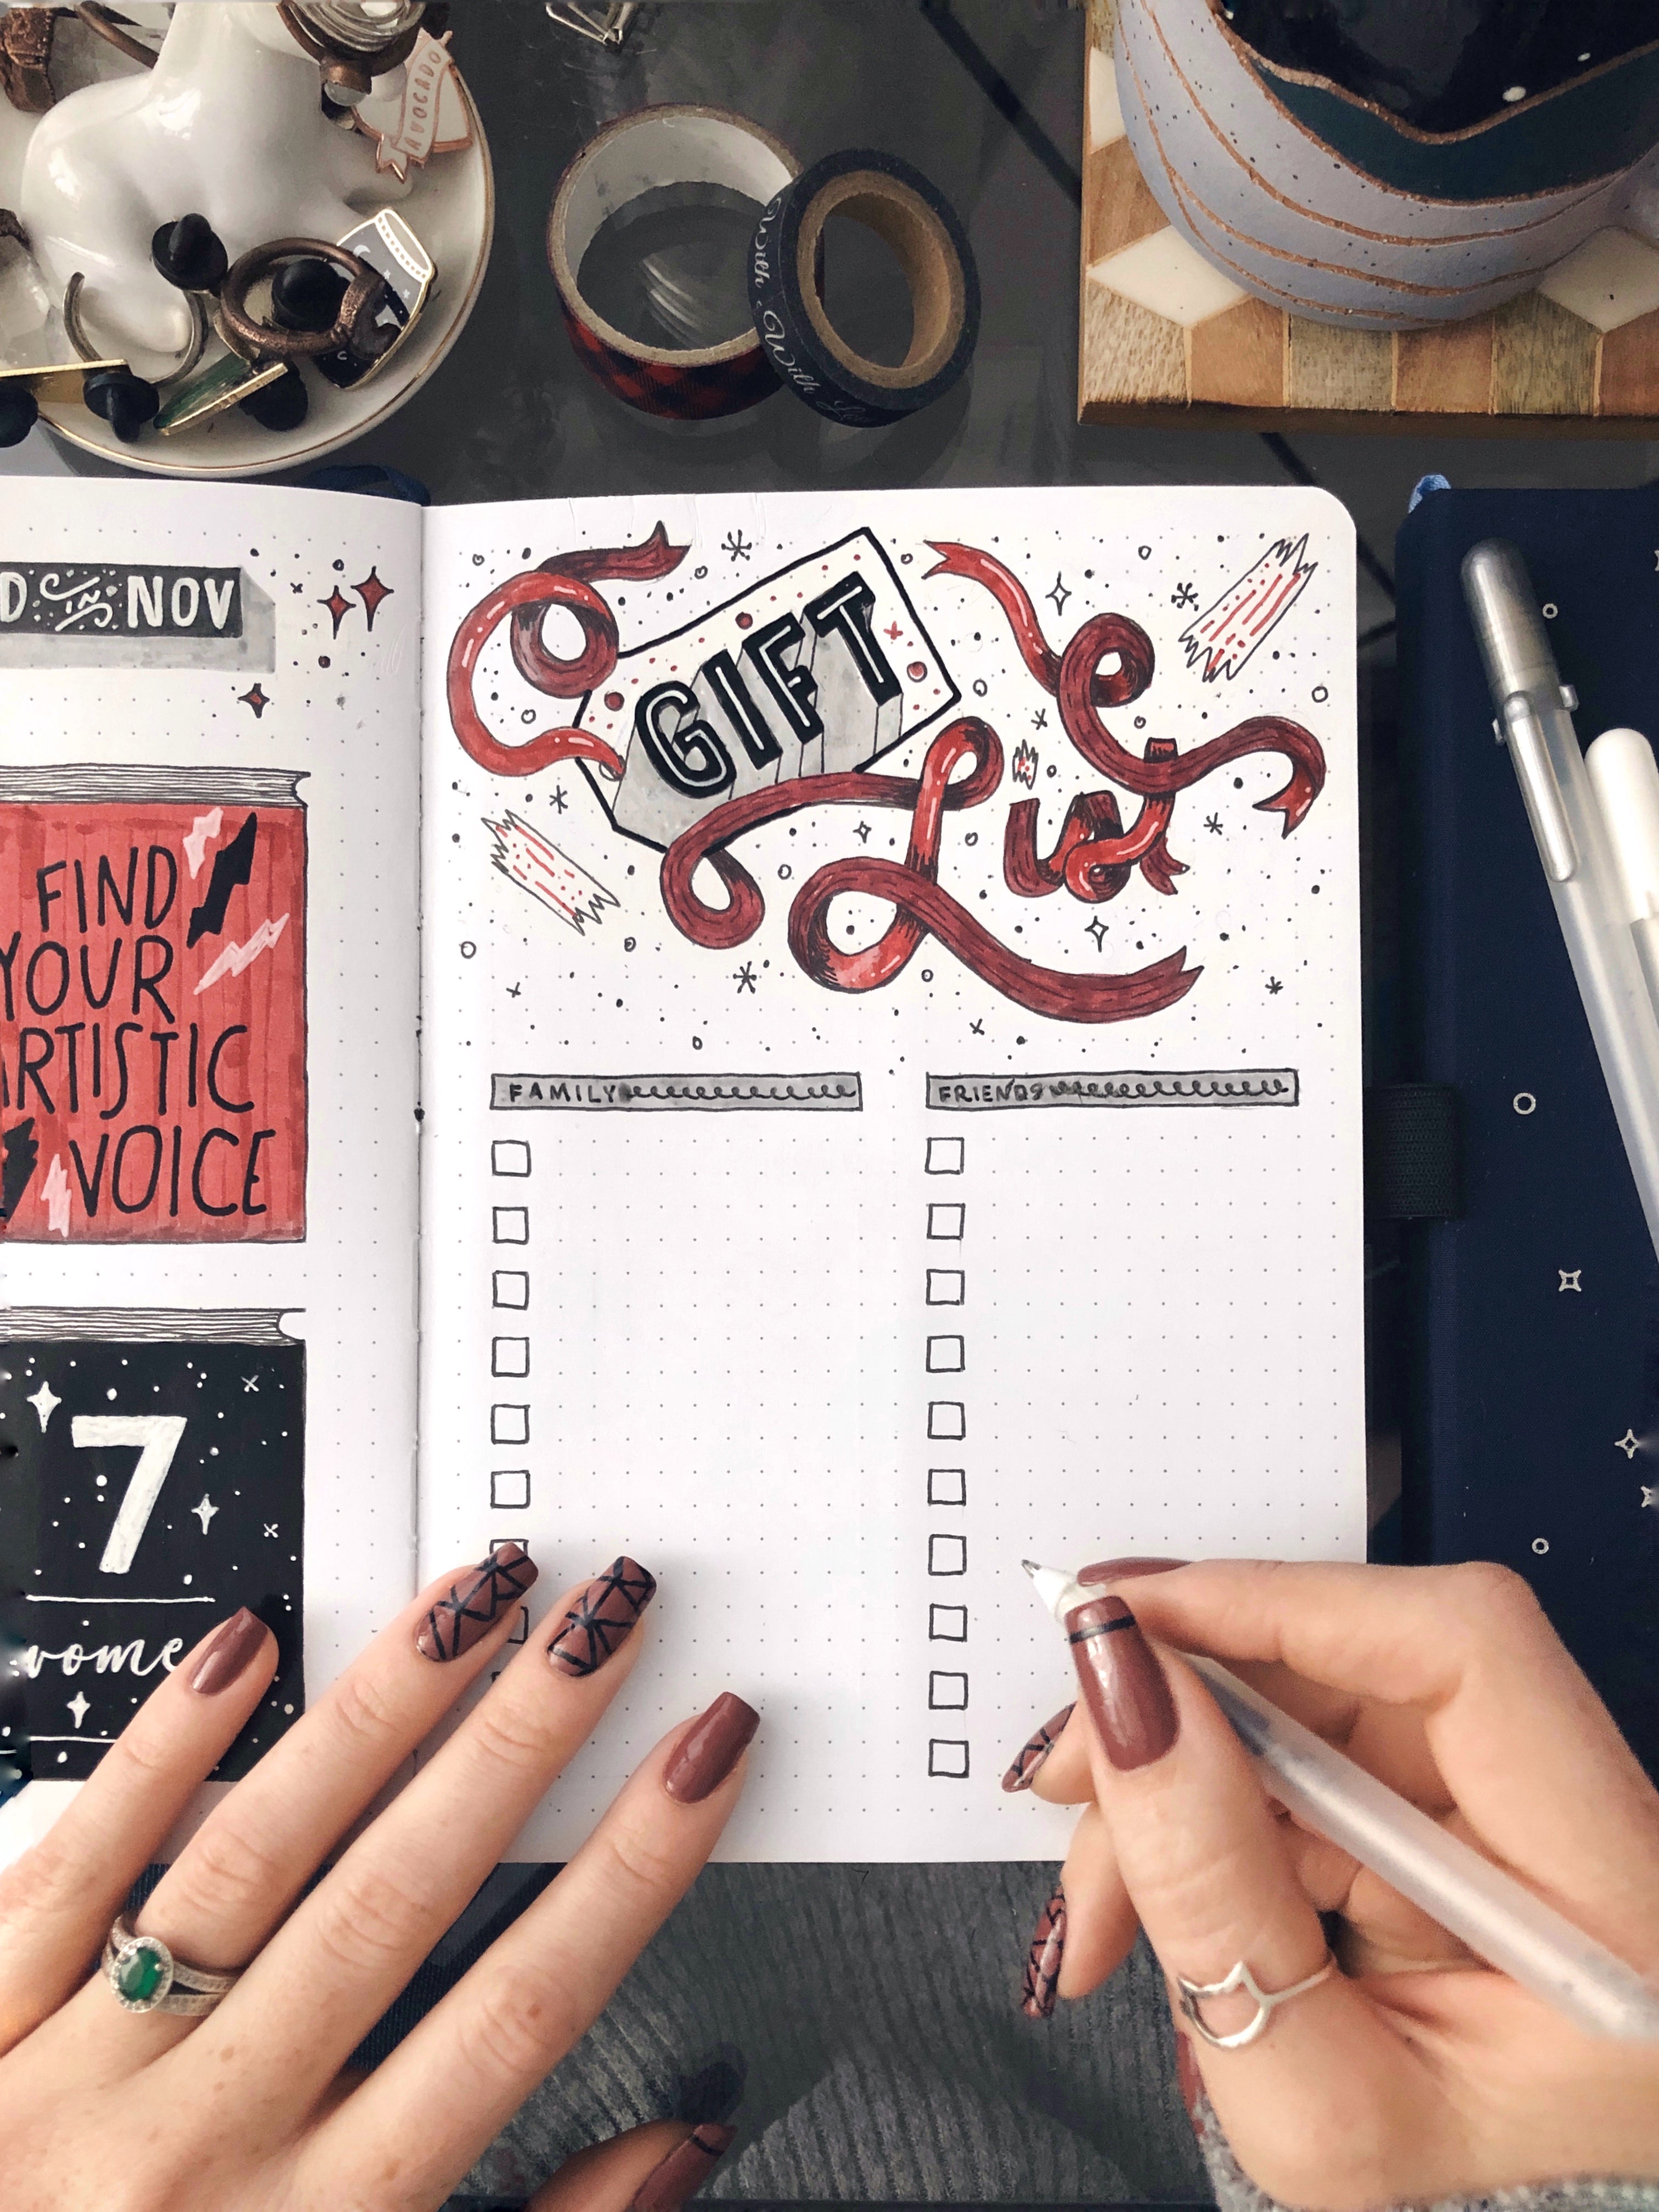 AVOCADO
With
With
D in NOV
FIND
YOUR
ARTISTIC
VOICE
7
GIFT
List
FAMILY
FRIENDS